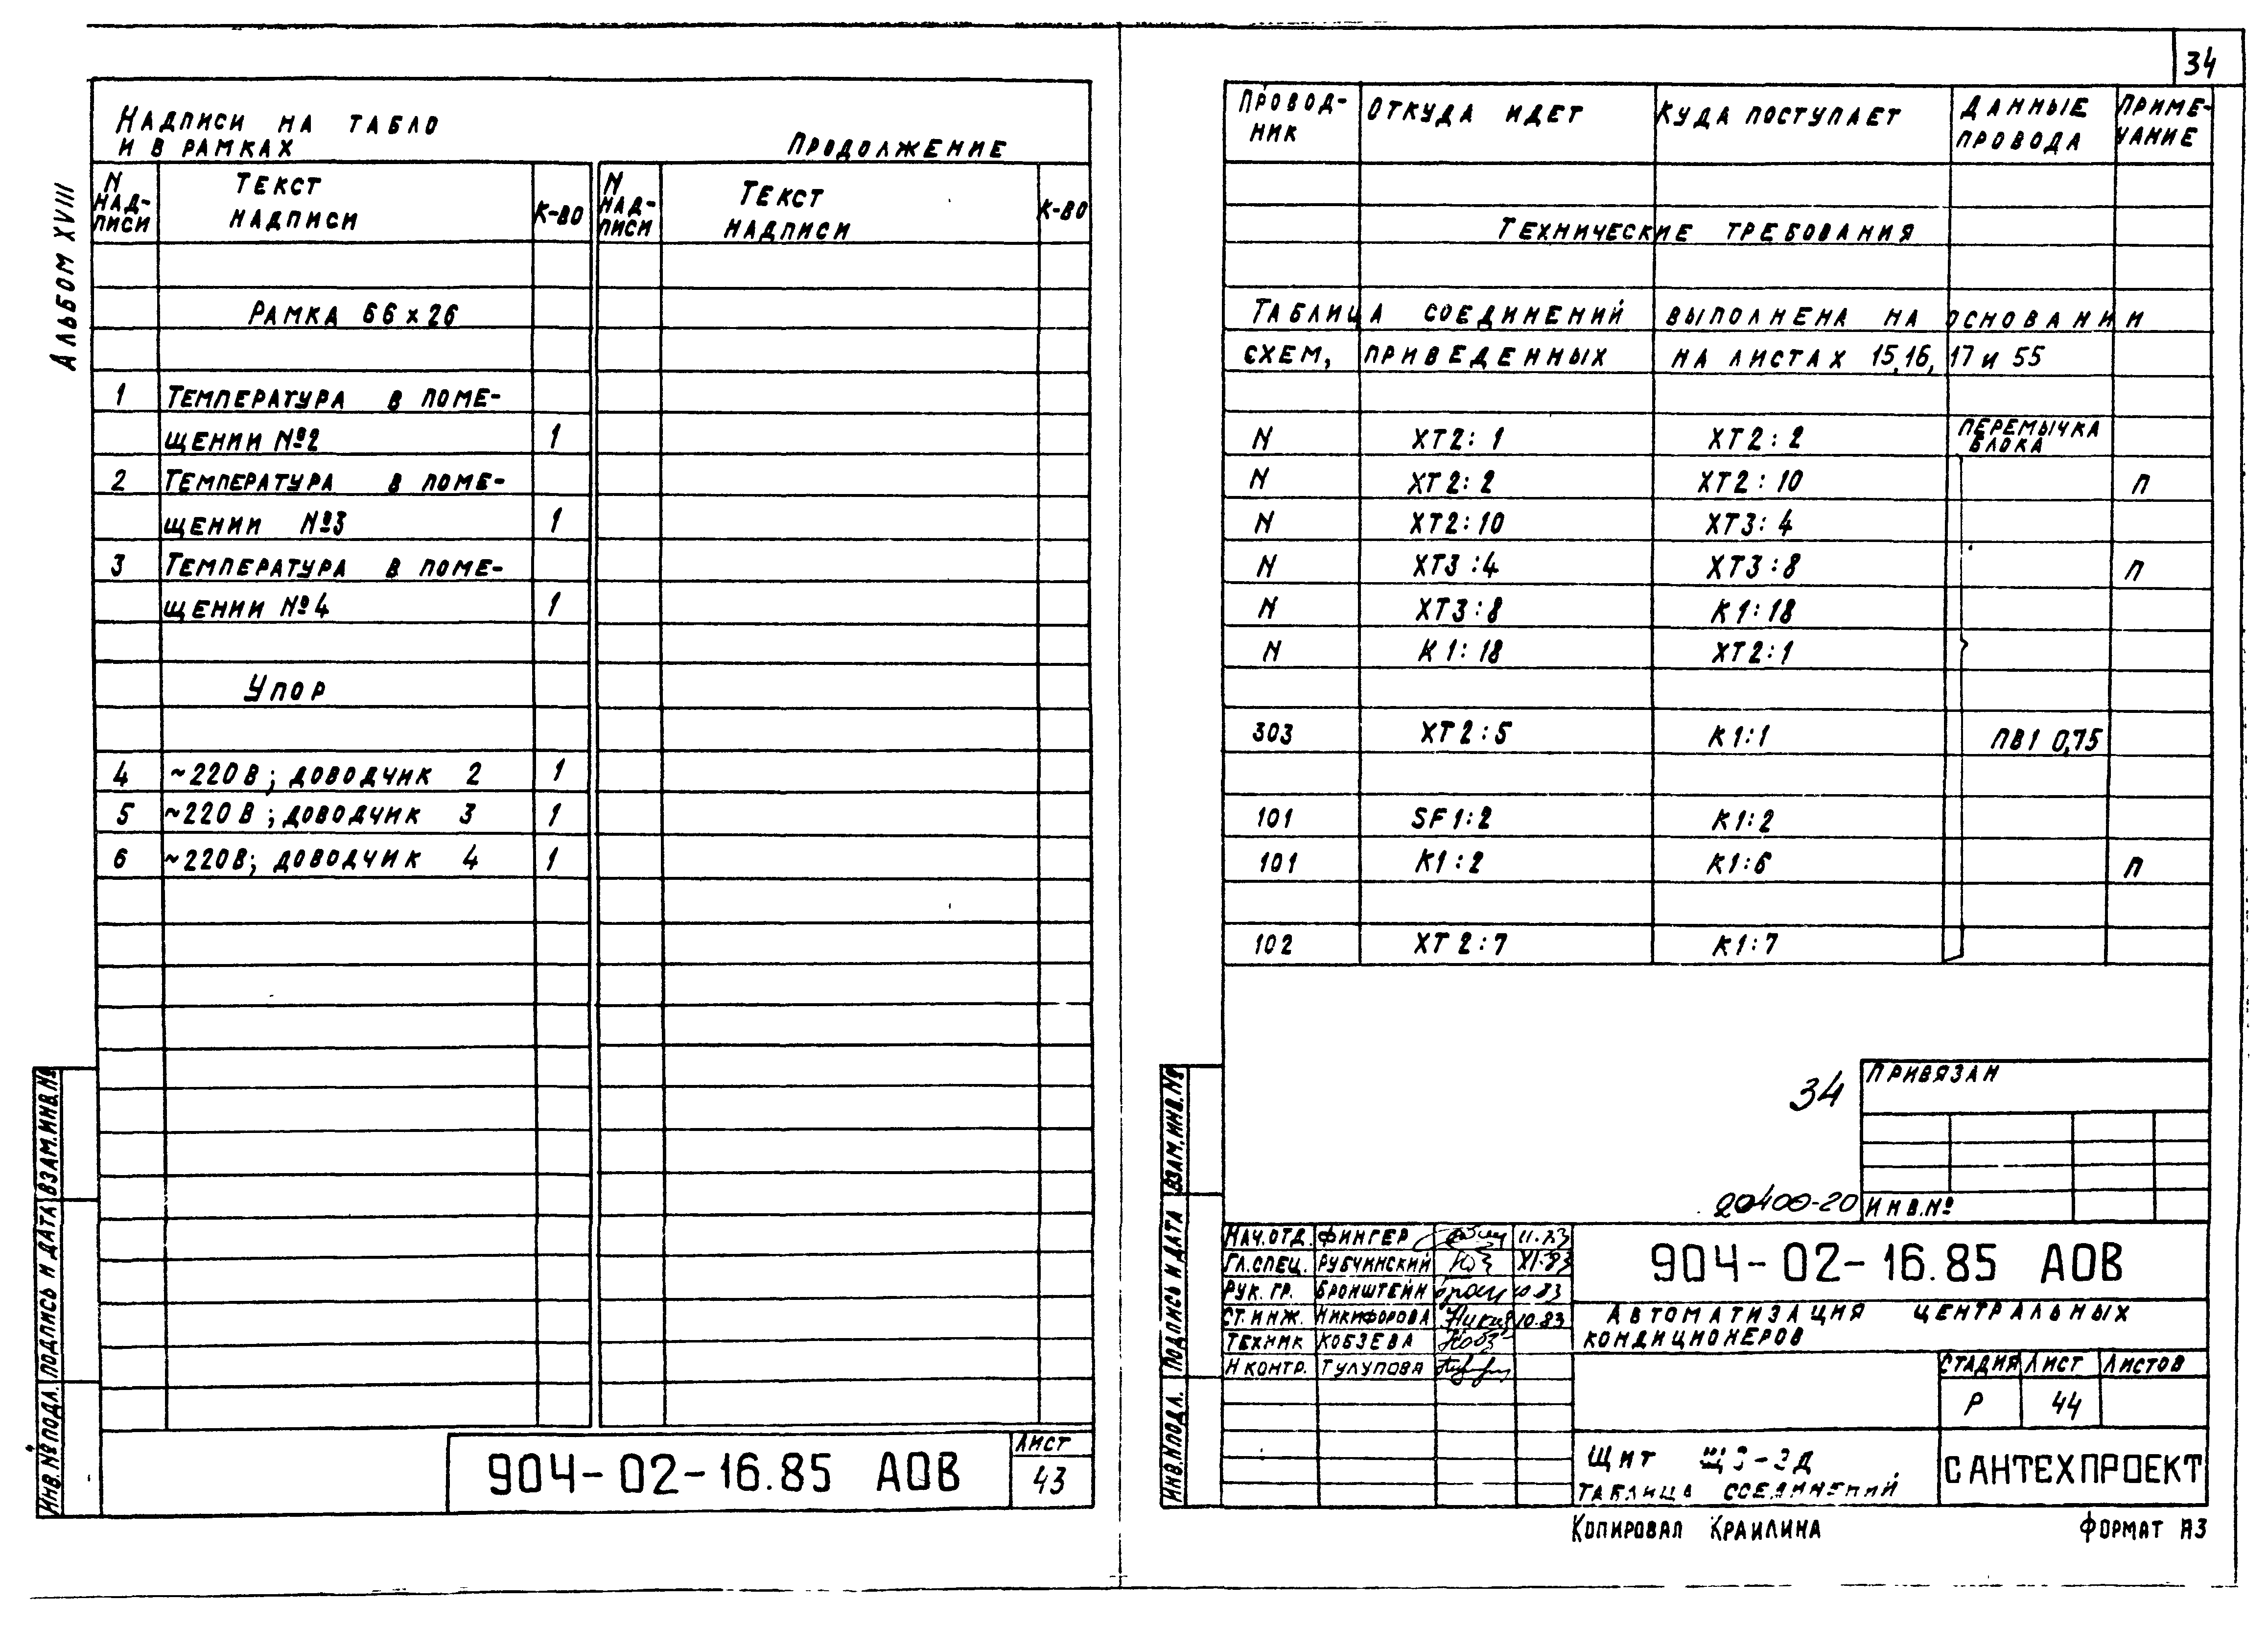 34
Альбом XVIII
Надписи на табло
и в рамках
Продолжение
N надписи Текст надписи К-во N надписи Текст надписи К-во
Рамка 66×26
1 Температура в поме-
щении №2 1
2 Температура в поме-
щении №3 1
3 Температура в поме-
щении №4 1
Упор
4 ~220В; доводчик 2 1
5 ~220В; доводчик 3 1
6 ~220В; доводчик 4 1
Инв.№подл. Подпись и дата Взам.инв.№
904-02-16.85 АОВ
Лист
43
Провод-
ник Откуда идет Куда поступает Данные провода Приме-
чание
Технические требования
Таблица соединений выполнена на основании
схем, приведенных на листах 15,16, 17 и 55
N ХТ2:1 ХТ2:2 Перемычка блока
N ХТ2:2 ХТ2:10 П
N ХТ2:10 ХТ3:4
N ХТ3:4 ХТ3:8 П
N ХТ3:8 К1:18
N К1:18 ХТ2:1
303 ХТ2:5 К1:1 ПВ1 0,75
101 SF1:2 К1:2
101 К1:2 К1:6 П
102 ХТ2:7 К1:7
34
Привязан
20400-20
Инв.№
Инв.№подл. Подпись и дата Взам.инв.№
Нач.отд. Фингер 11.83
Гл.спец. Рубчинский XI.83
Рук.гр. Бронштейн 10.83
Ст.инж. Никифорова 10.83
Техник Кобзева
Н контр. Тулупова
904-02-16.85 АОВ
Автоматизация центральных
кондиционеров
Стадия Лист Листов
Р 44
Щит
Таблица соединений
Сантехпроект
Копировал Краилина
Формат А3